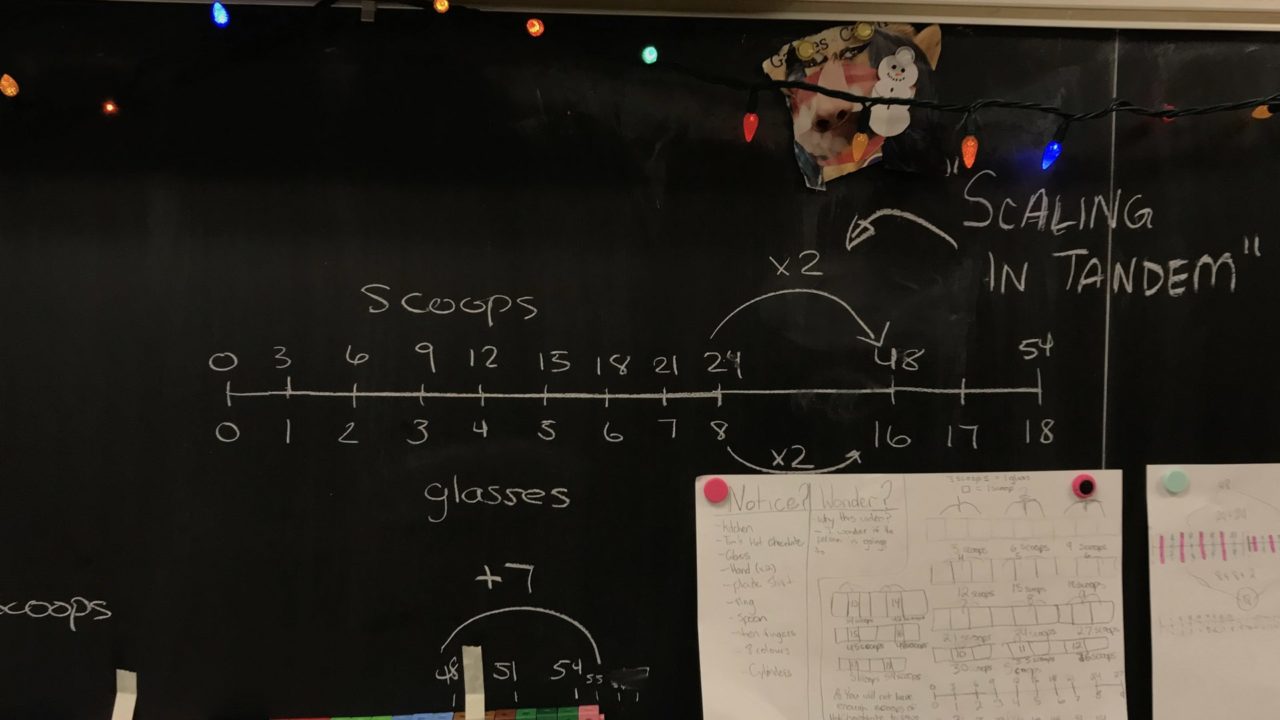 "SCALING
IN TANDEM"
x2
Scoops
0 3 6 9 12 15 18 21 24 48 54
0 1 2 3 4 5 6 7 8 16 17 18
x2
glasses
+7
scoops
48 51 54 55
Notice? Wonder?
- Kitchen
- Tim's Hot Chocolate
- Glass
- Hand (x2)
- plaide shirt
- ring
- Spoon
- 8 colours
- Cylinders
Why this video?
- I wonder if the
person is going
to
3 scoops = 1 glass
= 1 scoop
3 scoops 6 scoops 9 scoops
12 scoops 15 scoops 18 scoops
21 scoops 24 scoops 27 scoops
30 scoops 33 scoops 36 scoops
You will not have
enough scoops of